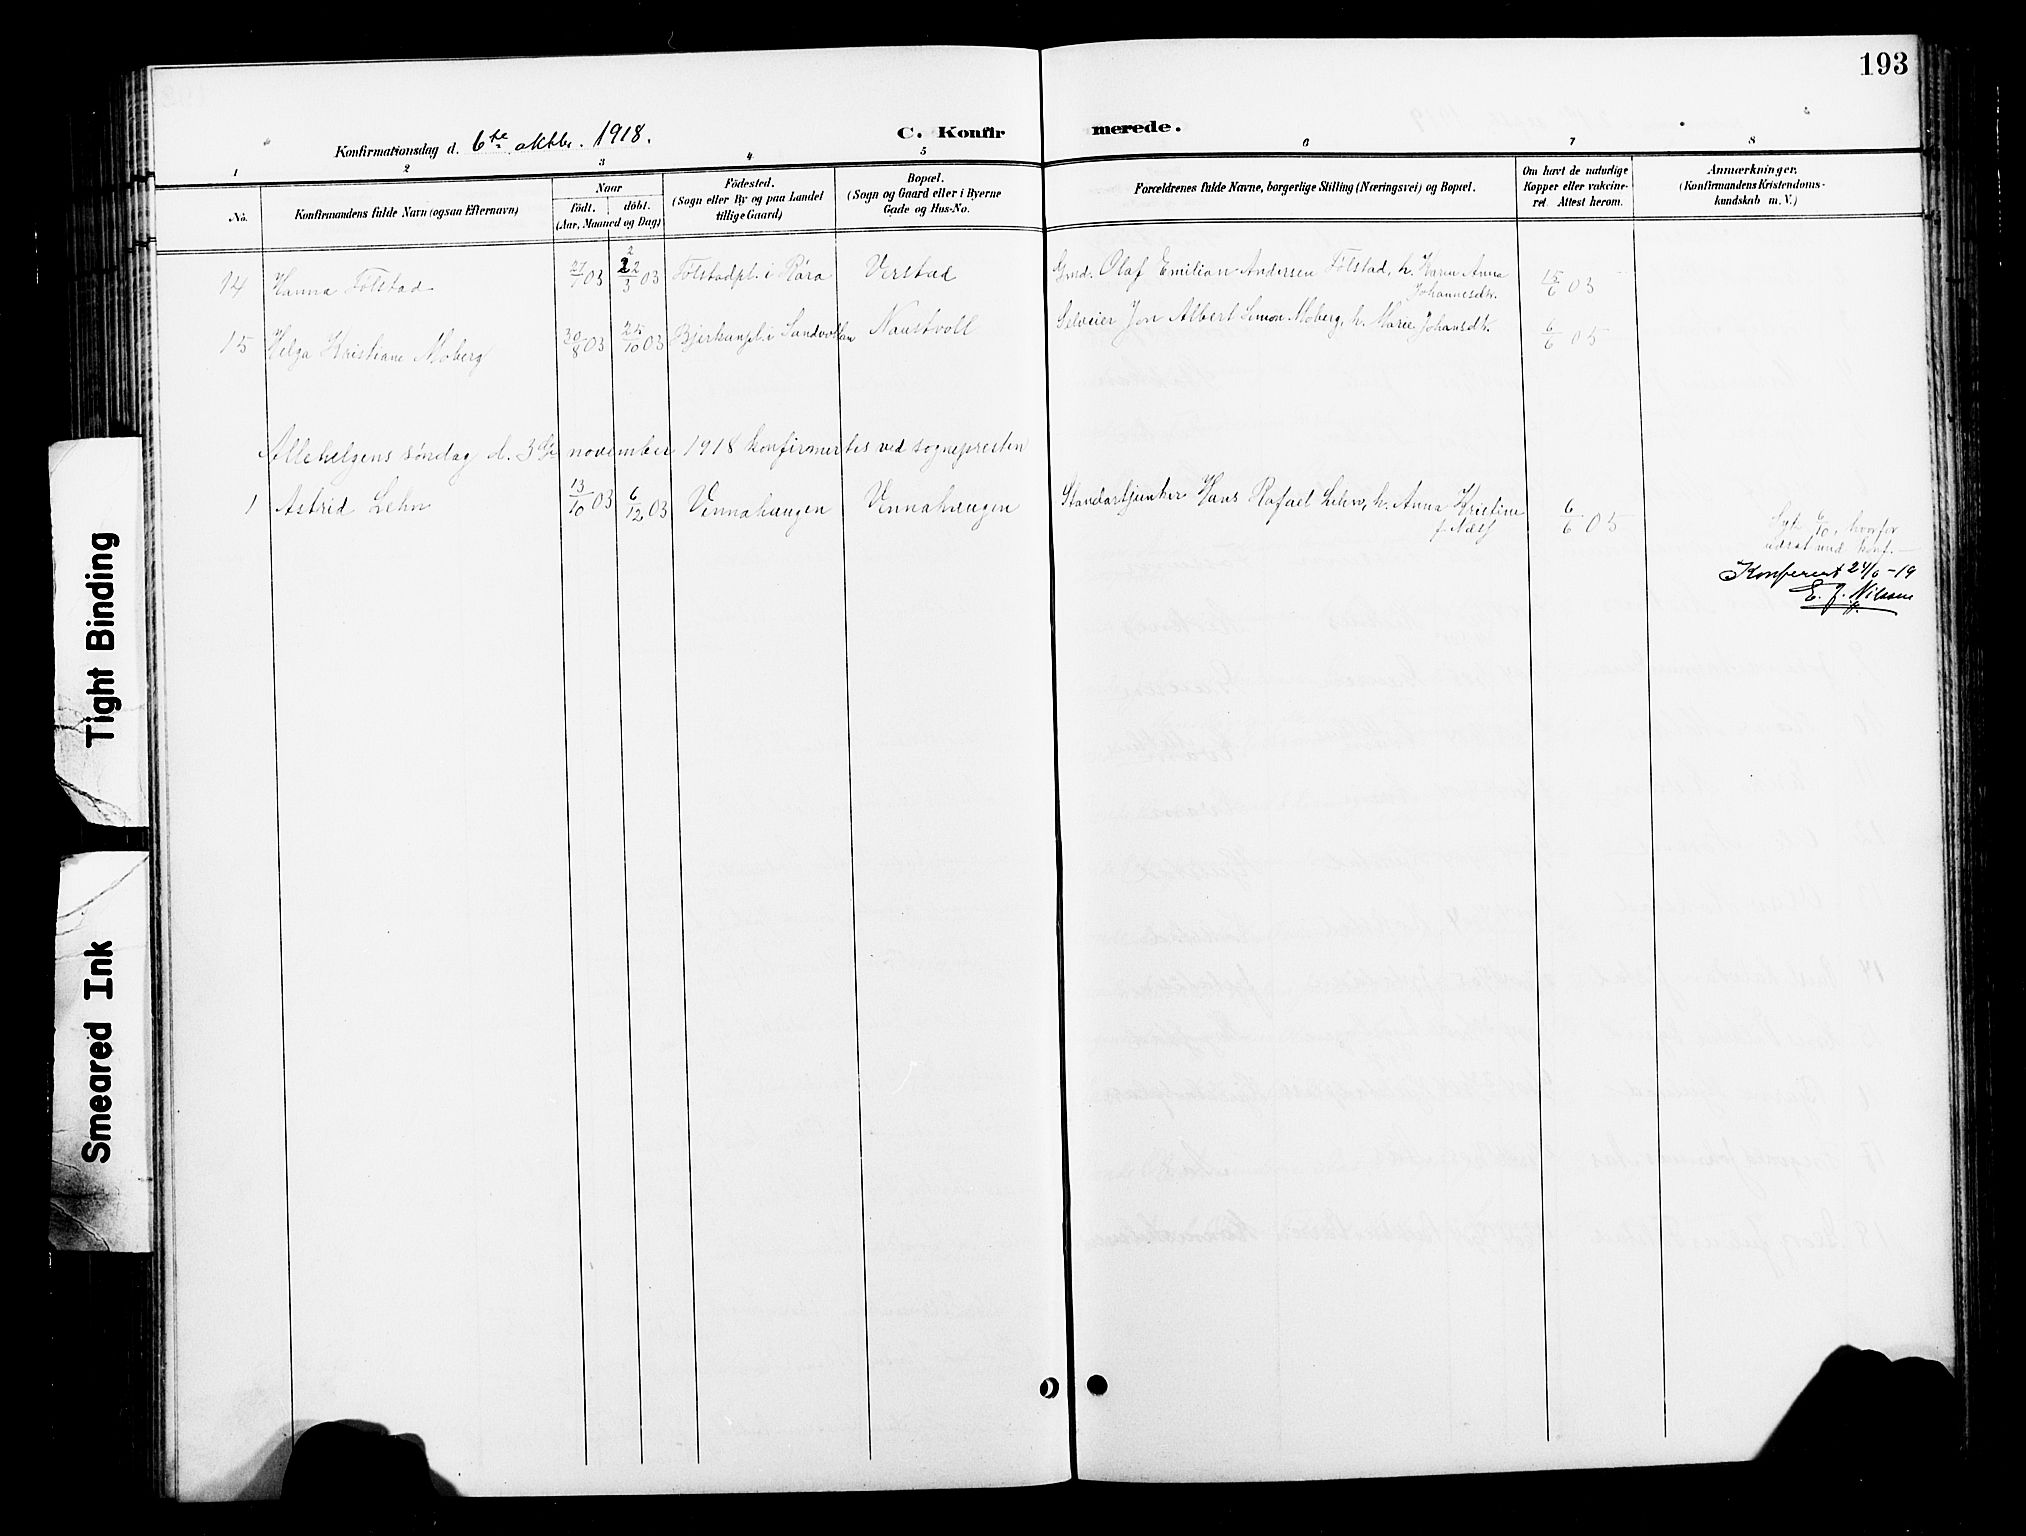 193
Konfirmationsdag d. 6te oktbr. 1918.
C. Konfirmerede.
1 2 3 4 5 6 7 8
No.
Konfirmandens fulde Navn (ogsaa Efternavn)
Naar
født. døbt.
(Aar, Maaned og Dag)
Fødested.
(Sogn eller By og paa Landet
tillige Gaard)
Bopæl.
(Sogn og Gaard eller i Byerne
Gade og Hus-No.
Forældrenes fulde Navne, borgerlige Stilling (Næringsvei) og Bopæl.
Om havt de naturlige
Kopper eller vakcine-
ret. Attest herom.
Anmærkninger.
(Konfirmandens Kristendoms-
kundskab m. V.)
14 Hanna Tølstad 27/7 03 22/3 03 Tølstadpl. i Røra Verstad Gmd. Olaf Emilian Andersen Tølstad, h. Karen Anna
Johannesdtr. 15/6 03
15 Helga Kristiane Moberg 30/8 03 25/10 03 Bjerkanpl. i Sandvollan Naustvoll Selveier Jon Albert Simon Moberg, h. Marie Johansdtr. 6/6 05
Allehelgens søndag d. 3dje november 1918 konfirmertes ved sognepresten
1 Astrid Lehn 13/10 03 6/12 03 Vennahaugen Vennahaugen Standartjunker Hans Rafael Lehn, h. Anna Kristine
f. Næss 6/6 05
Syk 6/10, hvorfor
konf.
Konferert 24/6-19
E. J. Nilssen
Tight Binding
Smeared Ink